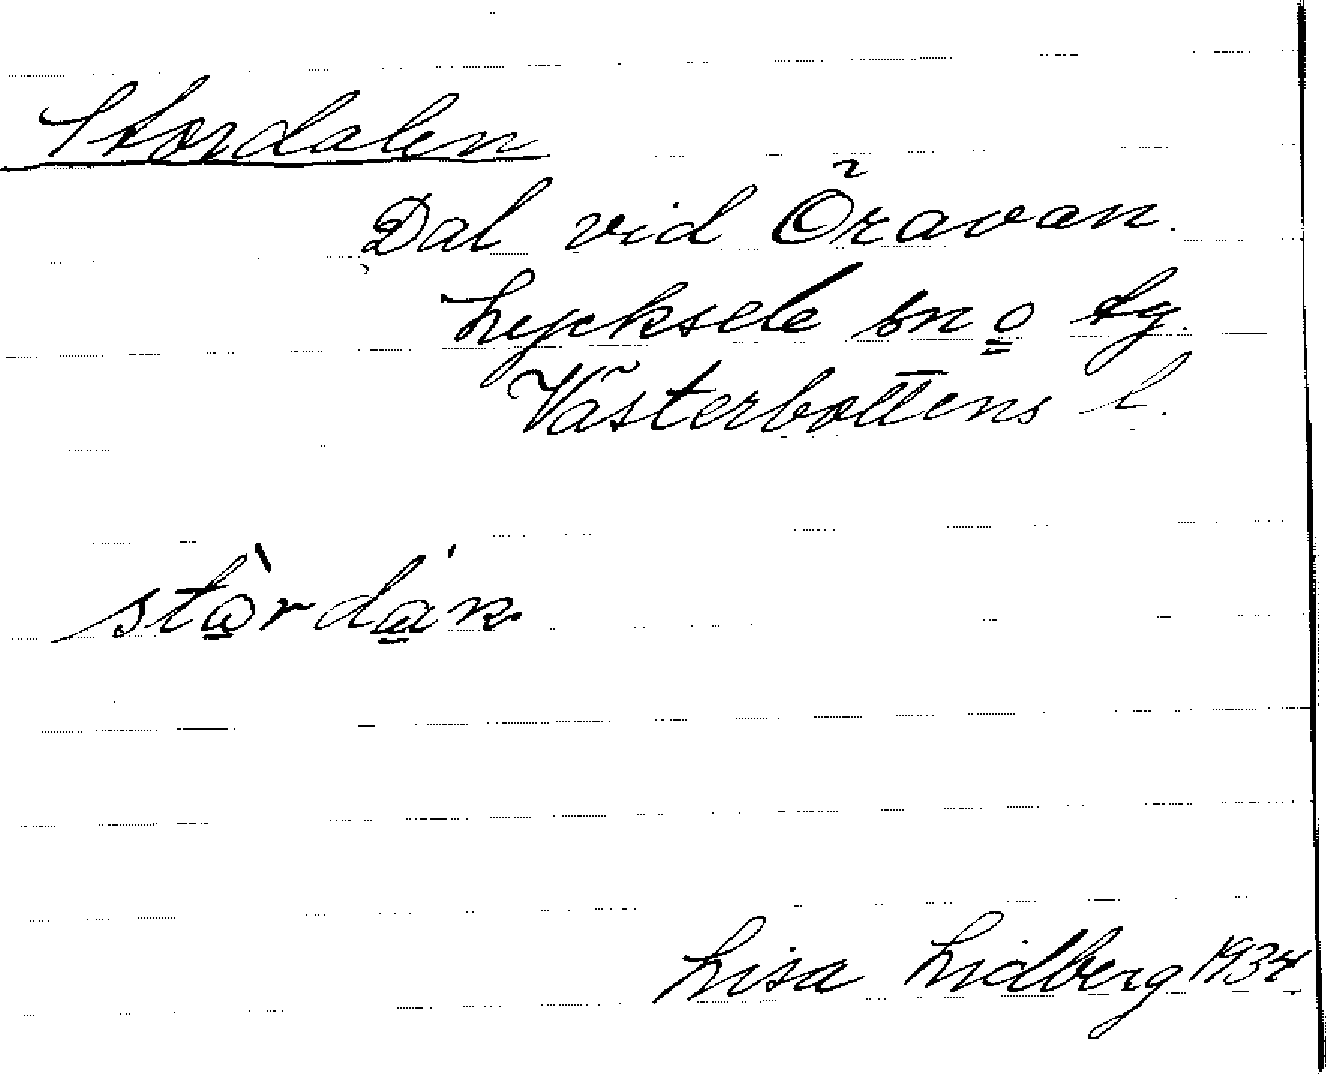 Stordalen
Dal vid Öravan.
Lycksele sn o tg.
Västerbottens l.
stòrdán
Lisa Lidberg 1934.